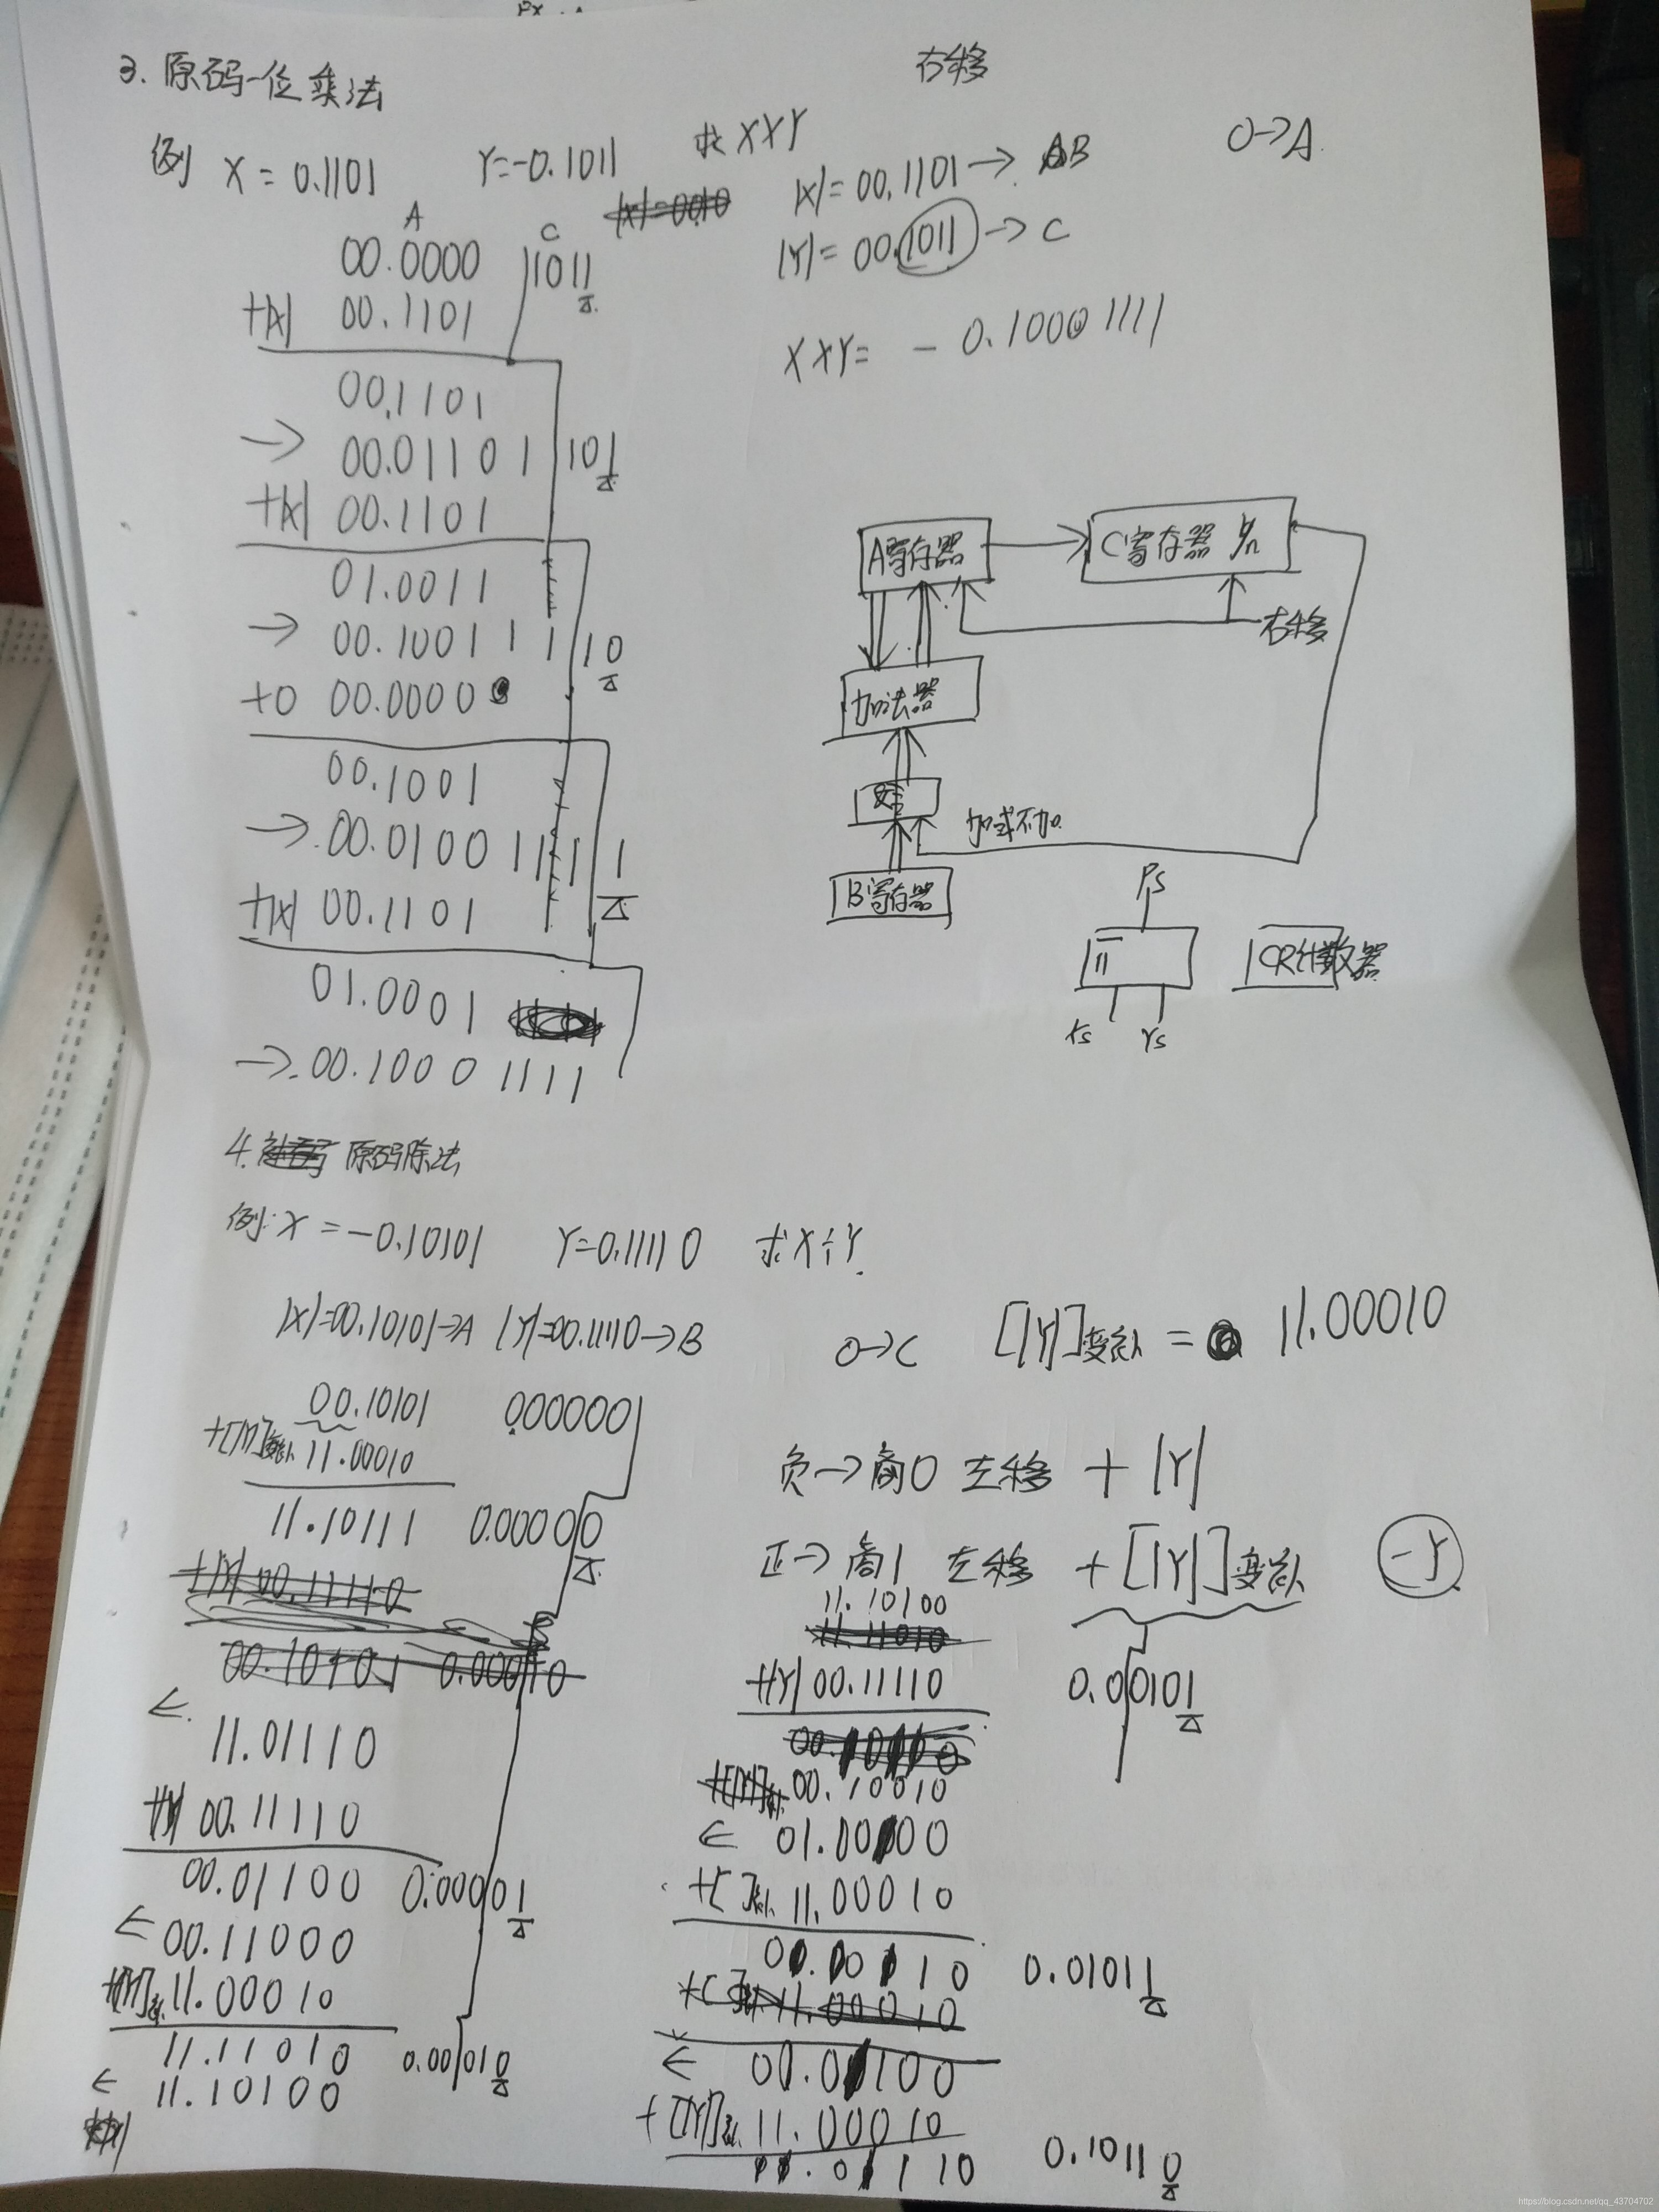 3. 原码一位乘法
右移
例 X = 0.1101 Y=-0.1011 求 X×Y
|X|=00.1101→ B 0→A.
|Y|=00.1011→C
X×Y= - 0.10001111
A C
00.0000 1011
+|X| 00.1101
00.1101
→ 00.0110 1 101
+|X| 00.1101
01.0011
→ 00.1001 1 1 10
+0 00.0000
00.1001
→ 00.0100 1 1 1 1
+|X| 00.1101
01.0001
→ 00.1000 1111
A寄存器
C寄存器 yn
右移
加法器
加或不加
B寄存器
Ps
Xs Ys
CR计数器
4. 原码除法
例: X = -0.10101 Y=0.11110 求X÷Y.
|X|=00.10101→A |Y|=00.11110→B 0→C [|Y|]变补 = 11.00010
00.10101 000000
+[|Y|]变补 11.00010
11.10111 0.00000
←
11.01110
+|Y| 00.11110
00.01100 0.00001
← 00.11000
+[|Y|]变补 11.00010
11.11010 0.00010
← 11.10100
负→商0 左移 + |Y|
正→商1 左移 + [|Y|]变补 -Y
11.10100
+|Y| 00.11110 0.00101
00.10010
← 01.00100
+[ ]变补 11.00010
00.00110 0.01011
← 00.01100
+[|Y|]变补 11.00010
11.01110 0.10110
https://blog.csdn.net/qq_43704702